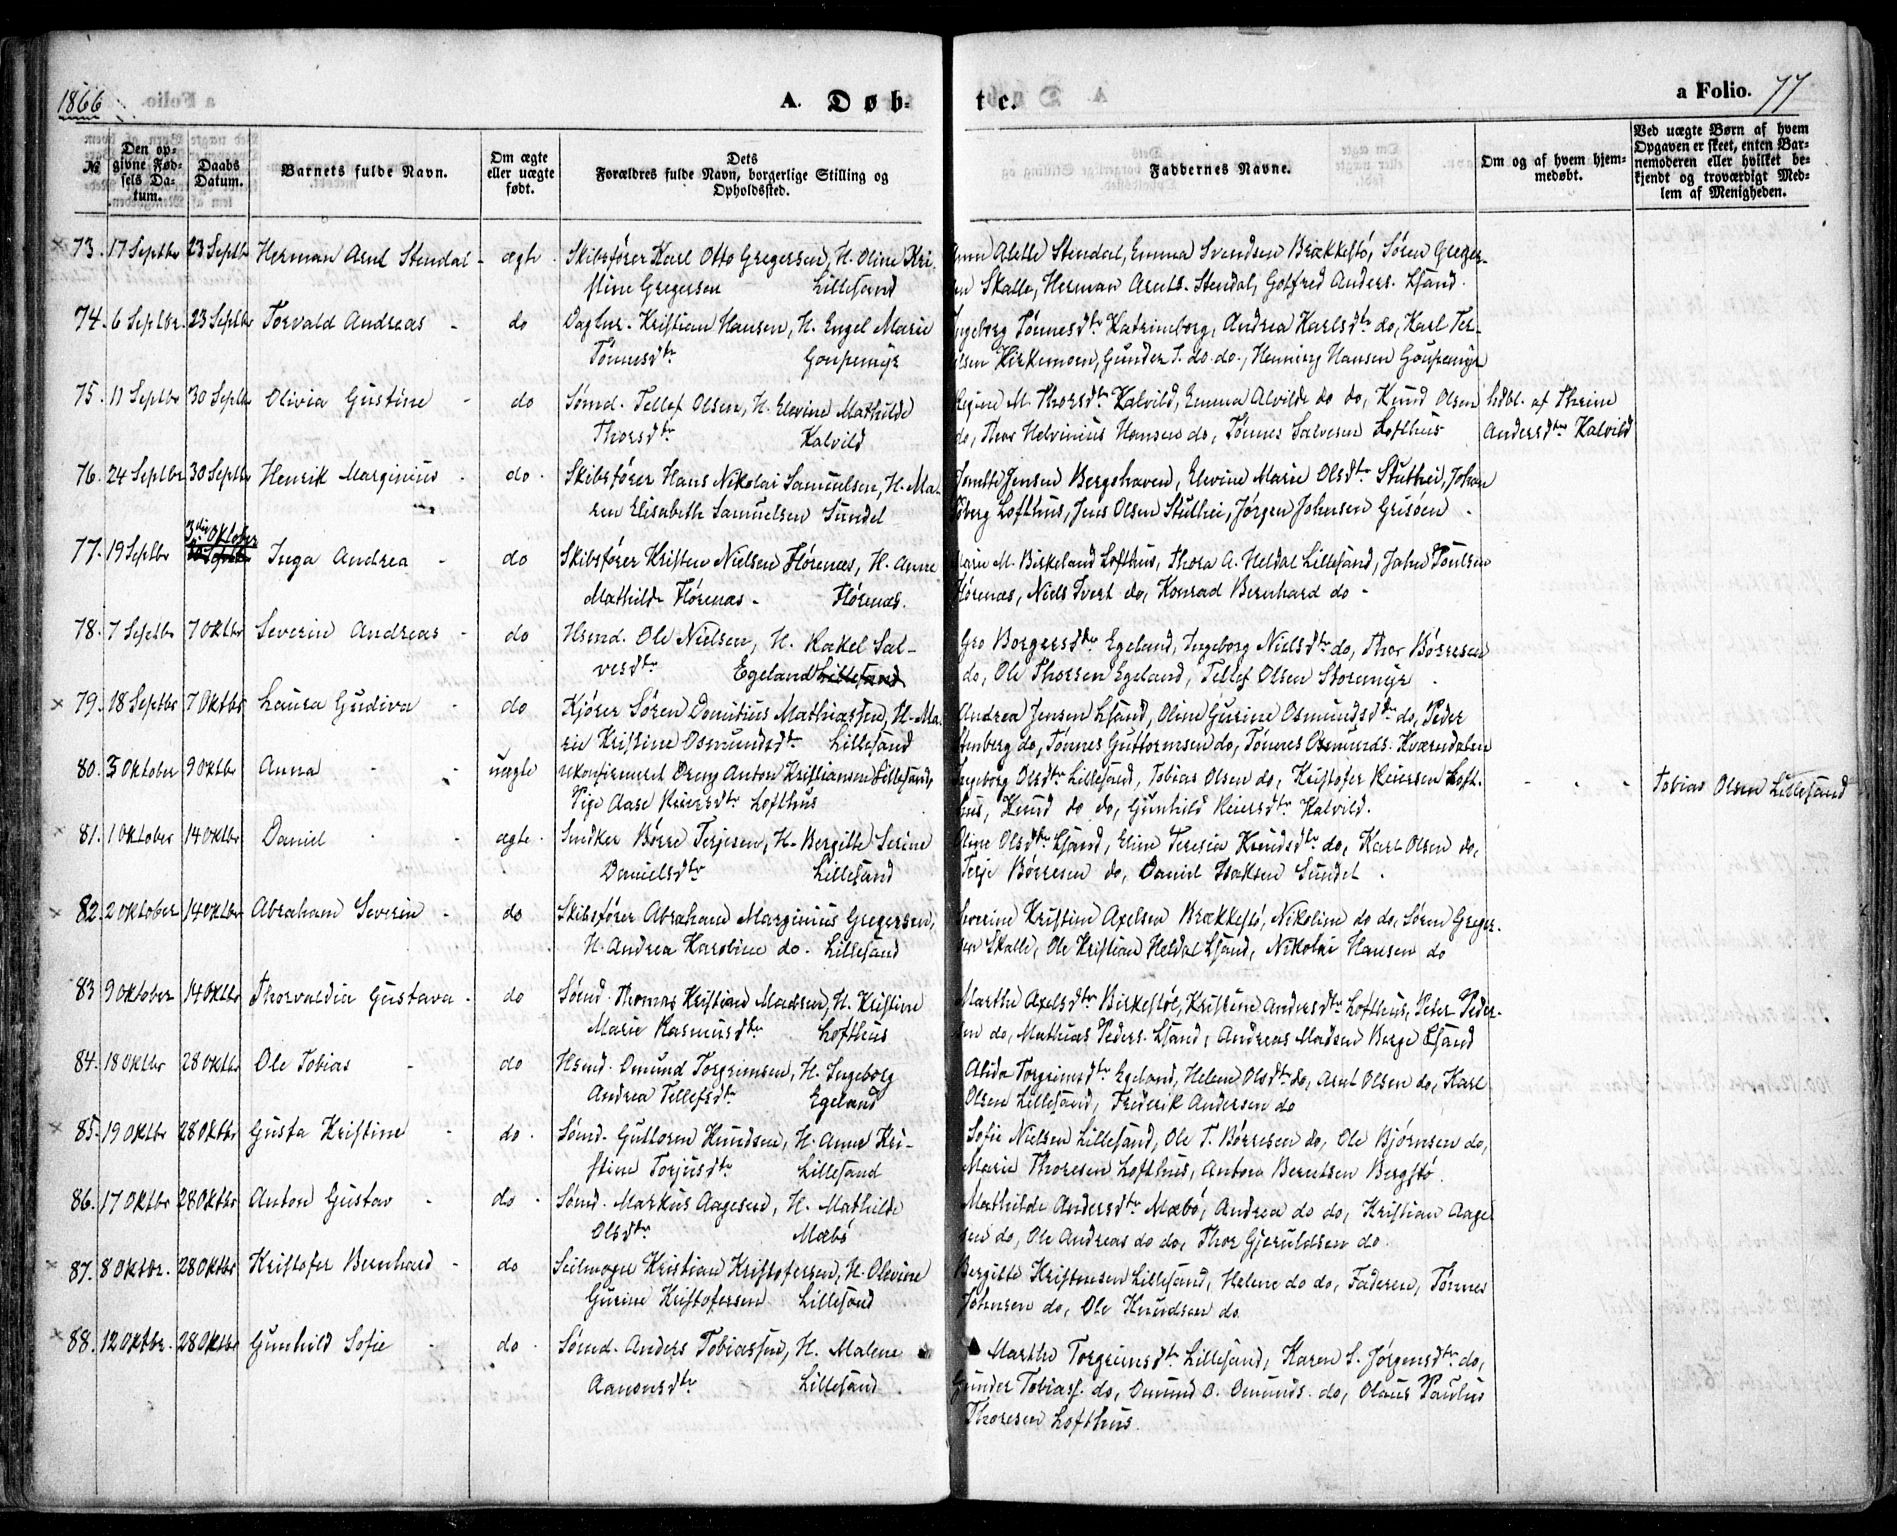 1866
A. Døb-
te.
a Folio. 77
№
Den opgivne Fødsels Datum.
Daabs Datum.
Barnets fulde Navn.
Om ægte eller uægte født.
Dets Forældres fulde Navn, borgerlige Stilling og Opholdssted.
Faddernes Navne.
Om og af hvem hjemmedøbt.
Ved uægte Børn af hvem Opgaven er skeet, enten Barnemoderen eller hvilket bekjendt og troværdigt Medlem af Menigheden.
73. 17 Septbr 23 Septbr Herman Arnt Stendal - ægte. Skibsfører Karl Otto Gregersen, H. Oline Kri- Alette Stendal, Emma Svendsen Brækkestø, Søren Greger-
stine Gregersen Lillesand Skalle, Herman Arnts. Stendal, Gotfred Anders. Lsand.
74. 6 Septbr. 23 Septbr Torvald Andreas - do Dagbr. Kristian Hansen, H. Engel Marie Ingeborg Tønnesdtr Katrineborg, Andrea Karlsdtr do, Karl Ter-
Tønnesdtr Goupemyr Kirkemoen, Gunder T. do. do., Henning Hansen Goupemyr
75. 11 Septbr 30 Septbr Olivia Gustine - do Sømd. Tellef Olsen, H. Elevine Mathilde Regine M. Thorsdtr Kalvild, Emma Alvilde do do, Knud Olsen hdbt. af Thrine
Thorsdtr Kalvild do, Thor Helvinius Hansen do, Tønnes Salvesen Lofthus Andersdtr Kalvild
76. 24 Septbr 30 Septbr Henrik Marginius - do. Skibsfører Hans Nikolai Samuelsen, H. Ma- Jensen Bergshaven, Elevine Marie Olsdtr Stuthei, Johan
ren Elisabeth Samuelsen Sundet Lofthus, Jens Olsen Stuthei, Jørgen Johnsen Grisøen.
3die Oktober
77. 19 Septbr Inga Andrea - do Skibsfører Kristen Nielsen Flørenæs, H. Anne Marie M. Birkeland Lofthus, Thora A. Heldal Lillesand, John Poulsen
Mathilde Flørenæs - Flørenæs. Flørenæs, Niels Ivert do, Konrad Bernhard do -
78. 7 Septbr 7 Oktbr Severin Andreas - do Hsmd. Ole Nielsen, H. Rakel Sal- Gro Borgersdtr Egeland, Ingeborg Nielsdtr do, Thor Børresen
vesdtr Egeland Lillesand do, Ole Thorsen Egeland, Tellef Olsen Storemyr.
79. 18 Septbr 7 Oktbr Laura Gudiva - do Kjører Søren Domitius Mathiassen, H. Ma- Andrea Jensen Lsand, Oline Gurine Osmundsdtr do, Peder
rie Kristine Osmundsdtr Lillesand Stenberg do, Tønnes Guttormsen do, Tønnes Osmunds. Kværndalen
80. 3 Oktober 9 Oktbr Anna - - uægte ukonfirmeret Dreng Anton Kristiansen Lillesand, Ingeborg Olsdtr Lillesand, Tobias Olsen do, Kristofer Reiersen Loft- - - - Tobias Olsen Lillesand
Pige Aase Reiersdtr Lofthus hus, Knud do do, Gunhild Reiersdtr Kalvild.
81. 1 Oktober 14 Oktbr Daniel - - ægte. Snedker Børre Terjesen, H. Bergitte Serine Oline Olsdtr Lsand, Eline Teresia Knudsdtr do, Karl Olsen do,
Danielsdtr Lillesand Terje Børresen do, Daniel Isaksen Sundet.
82. 2 Oktober 14 Oktbr Abraham Severin - do Skibsfører Abraham Marginius Gregersen, Severine Kristine Axelsen Brækkestø, Nikoline do do, Søren Greger-
H. Andrea Karoline do. Lillesand sen Skalle, Ole Kristian Heldal Lsand, Nikolai Hansen do
83 9 Oktober 14 Oktbr Thorvaldia Gustava - do Sømd. Thomas Kristian Madsen, H. Kristine Marthe Axelsdtr Birkestøl, Kristine Andersdtr Lofthus, Peter Peder-
Marie Rasmusdtr Lofthus sen do, Mathias Peders. Lsand, Andreas Madsen Berge Lsand
84. 18 Oktbr 28 Oktbr Ole Tobias - do Hsmd. Omund Torgrimsen, H. Ingeborg Alida Torgrimsdtr Egeland, Helene Olsdtr do, Arnt Olsen do, Karl
Andrea Tellefsdtr Egeland Olsen Lillesand, Frederik Andersen do
85. 19 Oktbr 28 Oktbr Gusta Kristine - do. Sømd. Guttorm Knudsen, H. Anne Kri- Sofie Nielsen Lillesand, Ole T. Børresen do, Ole Bjørnsen do,
stine Torjusdtr Lillesand Marie Thoresen Lofthus, Antora Berntsen Bergstø.
86. 17 Oktbr 28 Oktbr Anton Gustav - do. Sømd. Markus Aagesen, H. Mathilde Mathilde Andersdtr Mæbø, Andrea do do, Kristian Aage-
Olsdtr Mæbø sen do, Ole Andreas do do, Thor Gjeruldsen do
87. 8 Oktbr. 28 Oktbr Kristofer Bernhard - do Seilmager Kristian Kristofersen, H. Olevine Bergitte Kristensen Lillesand, Helene do do, Faderen, Tønnes
Gurine Kristofersen Lillesand Johnsen do, Ole Knudsen do
88. 12 Oktbr. 28 Oktbr Gunhild Sofie - do. Sømd. Anders Tobiassen, H. Malene Marthe Torgrimsdtr Lillesand, Karen S. Jørgensdtr do,
Aanonsdtr Lillesand Gunder Tobiass. do, Omund O. Omunds. do, Olaus Paulus
Thoresen Lofthus.